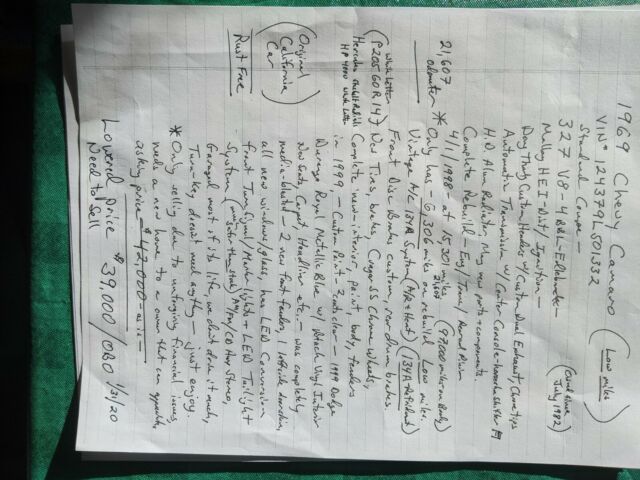 1969 Chevy Camaro (Low miles)
VIN# 124379L501332
Standard Coupe - (Own since July, 1982)
327 V8 - 4BBL - Edelbrock -
Malloy HEI - Dist/Ignition -
Doug Thorley Custom Headers w/ Custom Dual Exhaust, Chrome tips
Automatic Transmission w/ Center Console - horseshoe shifter
H.D. Alum Radiator, Many new parts + components.
Complete Rebuild - Eng/Trans/
4/1/1998 - at 15,301 miles (97,000 miles on Body)
21,607 odometer * Only has 6,306 miles on rebuild Low miles.
Vintage A/C 134A System (A/C + Heat) (134A Refrigerant)
Front Disc Brakes custom, rear drum brakes.
(P205 60R14) New Tires, brakes, Cragar SS Chrome wheels,
White Letter Hercules HP 4000 Complete new interior, paint, body, fenders
in 1999, - Custom Paint - 1999 Dodge
Durango Royal Metallic Blue w/ Black Vinyl Interior
(Original California Car) New Seats, Carpet, Headliner etc, - was completely
media-blasted - 2 new front fenders, 1 left side door skin,
all new windows/glass, has LED Conversion
Rust Free front Turn Signal/Marker lights + LED Taillight
System, AM/FM/CD Stereo,
Garaged most of its life, we don't drive it much,
Turn-key doesn't need anything - just enjoy.
* Only selling due to unforgiving financial issues,
needs a new home to a owner that can appreciate,
asking price - $42,000 - as is -
Lowered price $39,000/OBO 1/31/20
Need to Sell